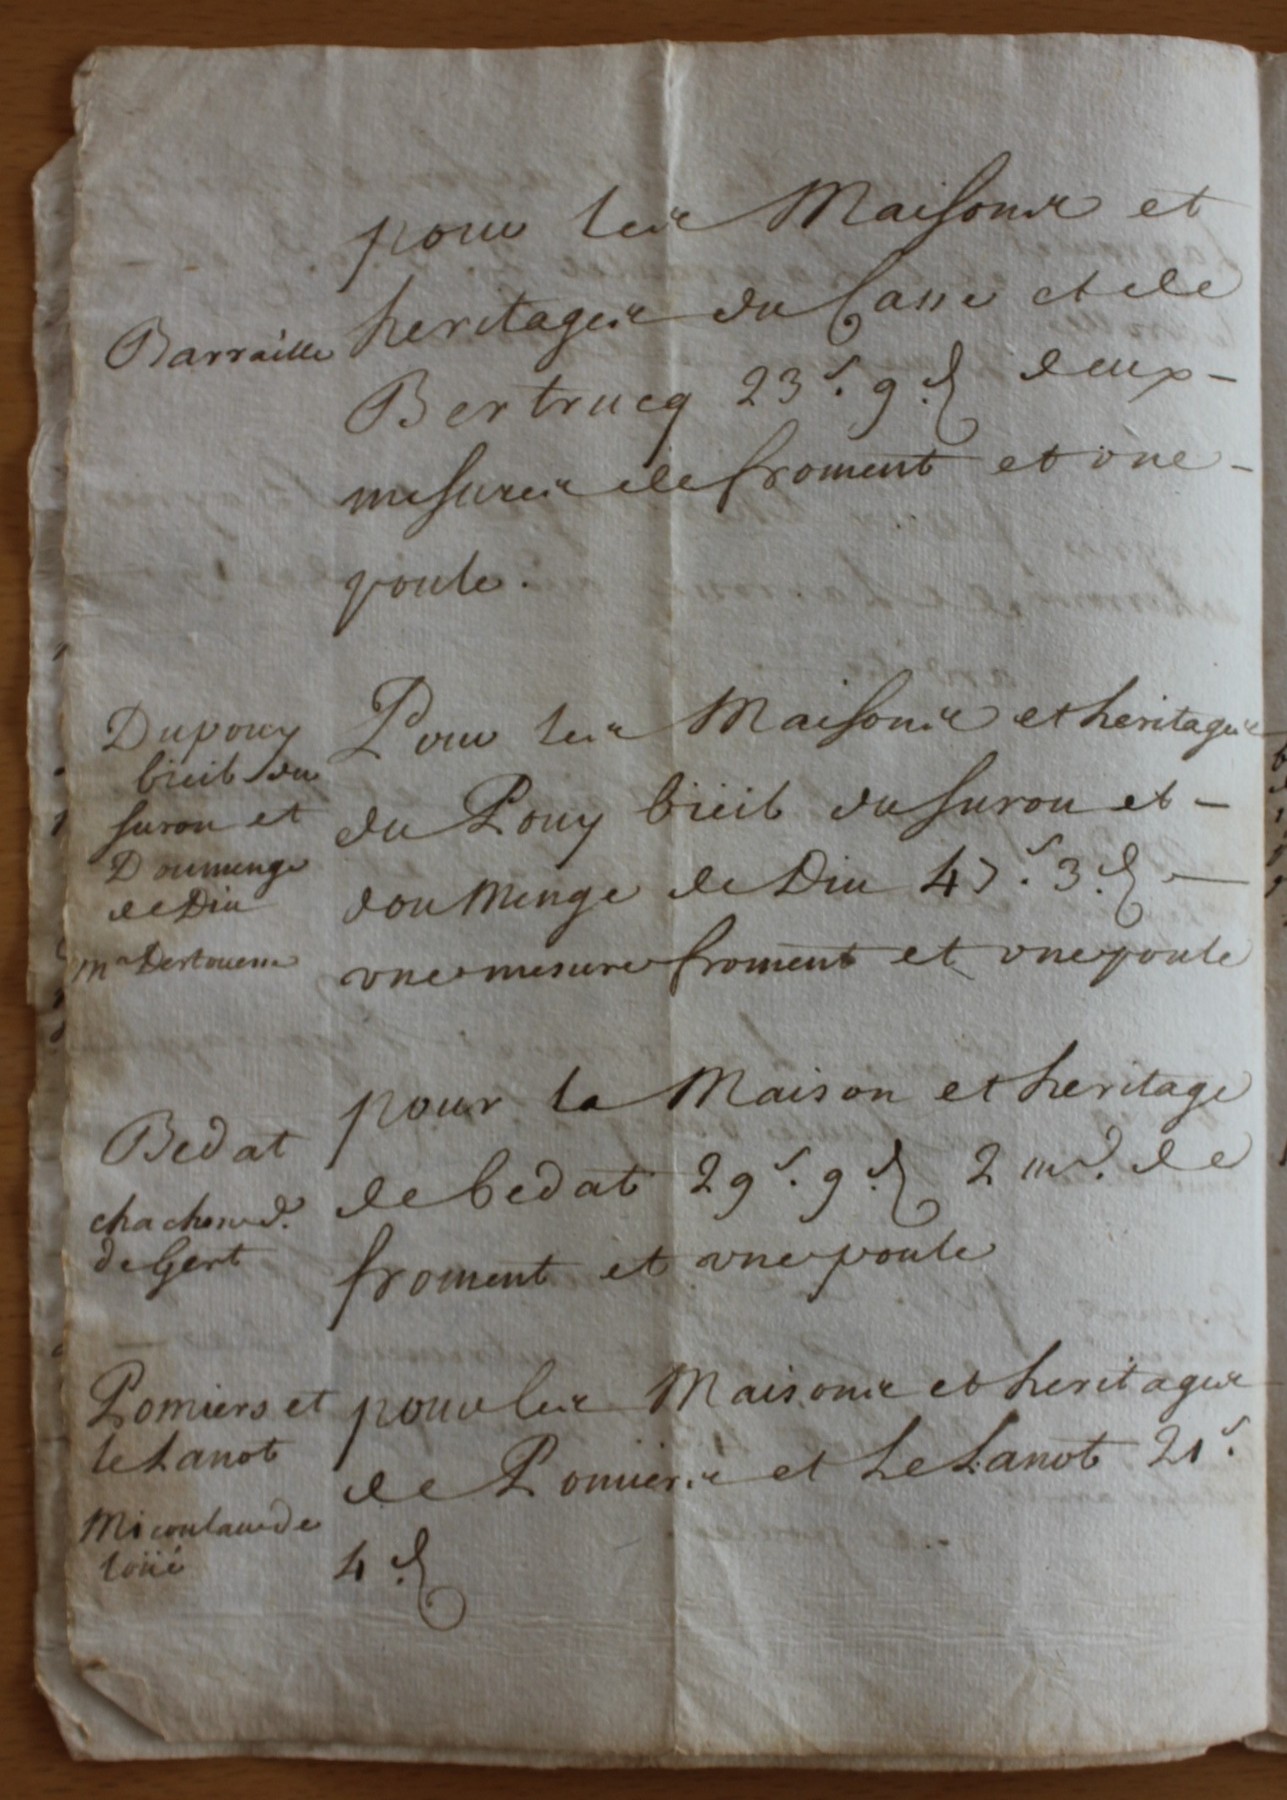 pour les Maisons et
Barraille
heritages du Casse et de
Bertrucq 23 s. 9 d. deux -
mesures de froment et vne -
poule.
Dupouy
bieil du
suron et
Doumenge
de Diu
Pour les Maisons et heritages
du Pouy bieil du suron et -
douMenge de Diu 47 s. 3 d. -
vne mesure froment et vne poule
Bedat
de Gert
pour la Maison et heritage
de bedat 29 s. 9 d. 2 m d. de
froment et vne poule
Pomiers et
le Lanot
pour les Maisons et heritages
de Pomiers et Le Lanot 21 s.
4 d.